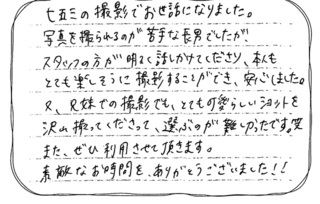 七五三の撮影でお世話になりました。
写真を撮られるのが苦手な長男でしたが
スタッフの方が明るく話しかけてくださり、本人も
とても楽しそうに撮影することができ、安心しました。
又、兄妹での撮影でも、とても可愛らしいショットを
沢山撮ってくださって、選ぶのが難しかったです。笑
また、ぜひ利用させて頂きます。
素敵なお時間を、ありがとうございました!!